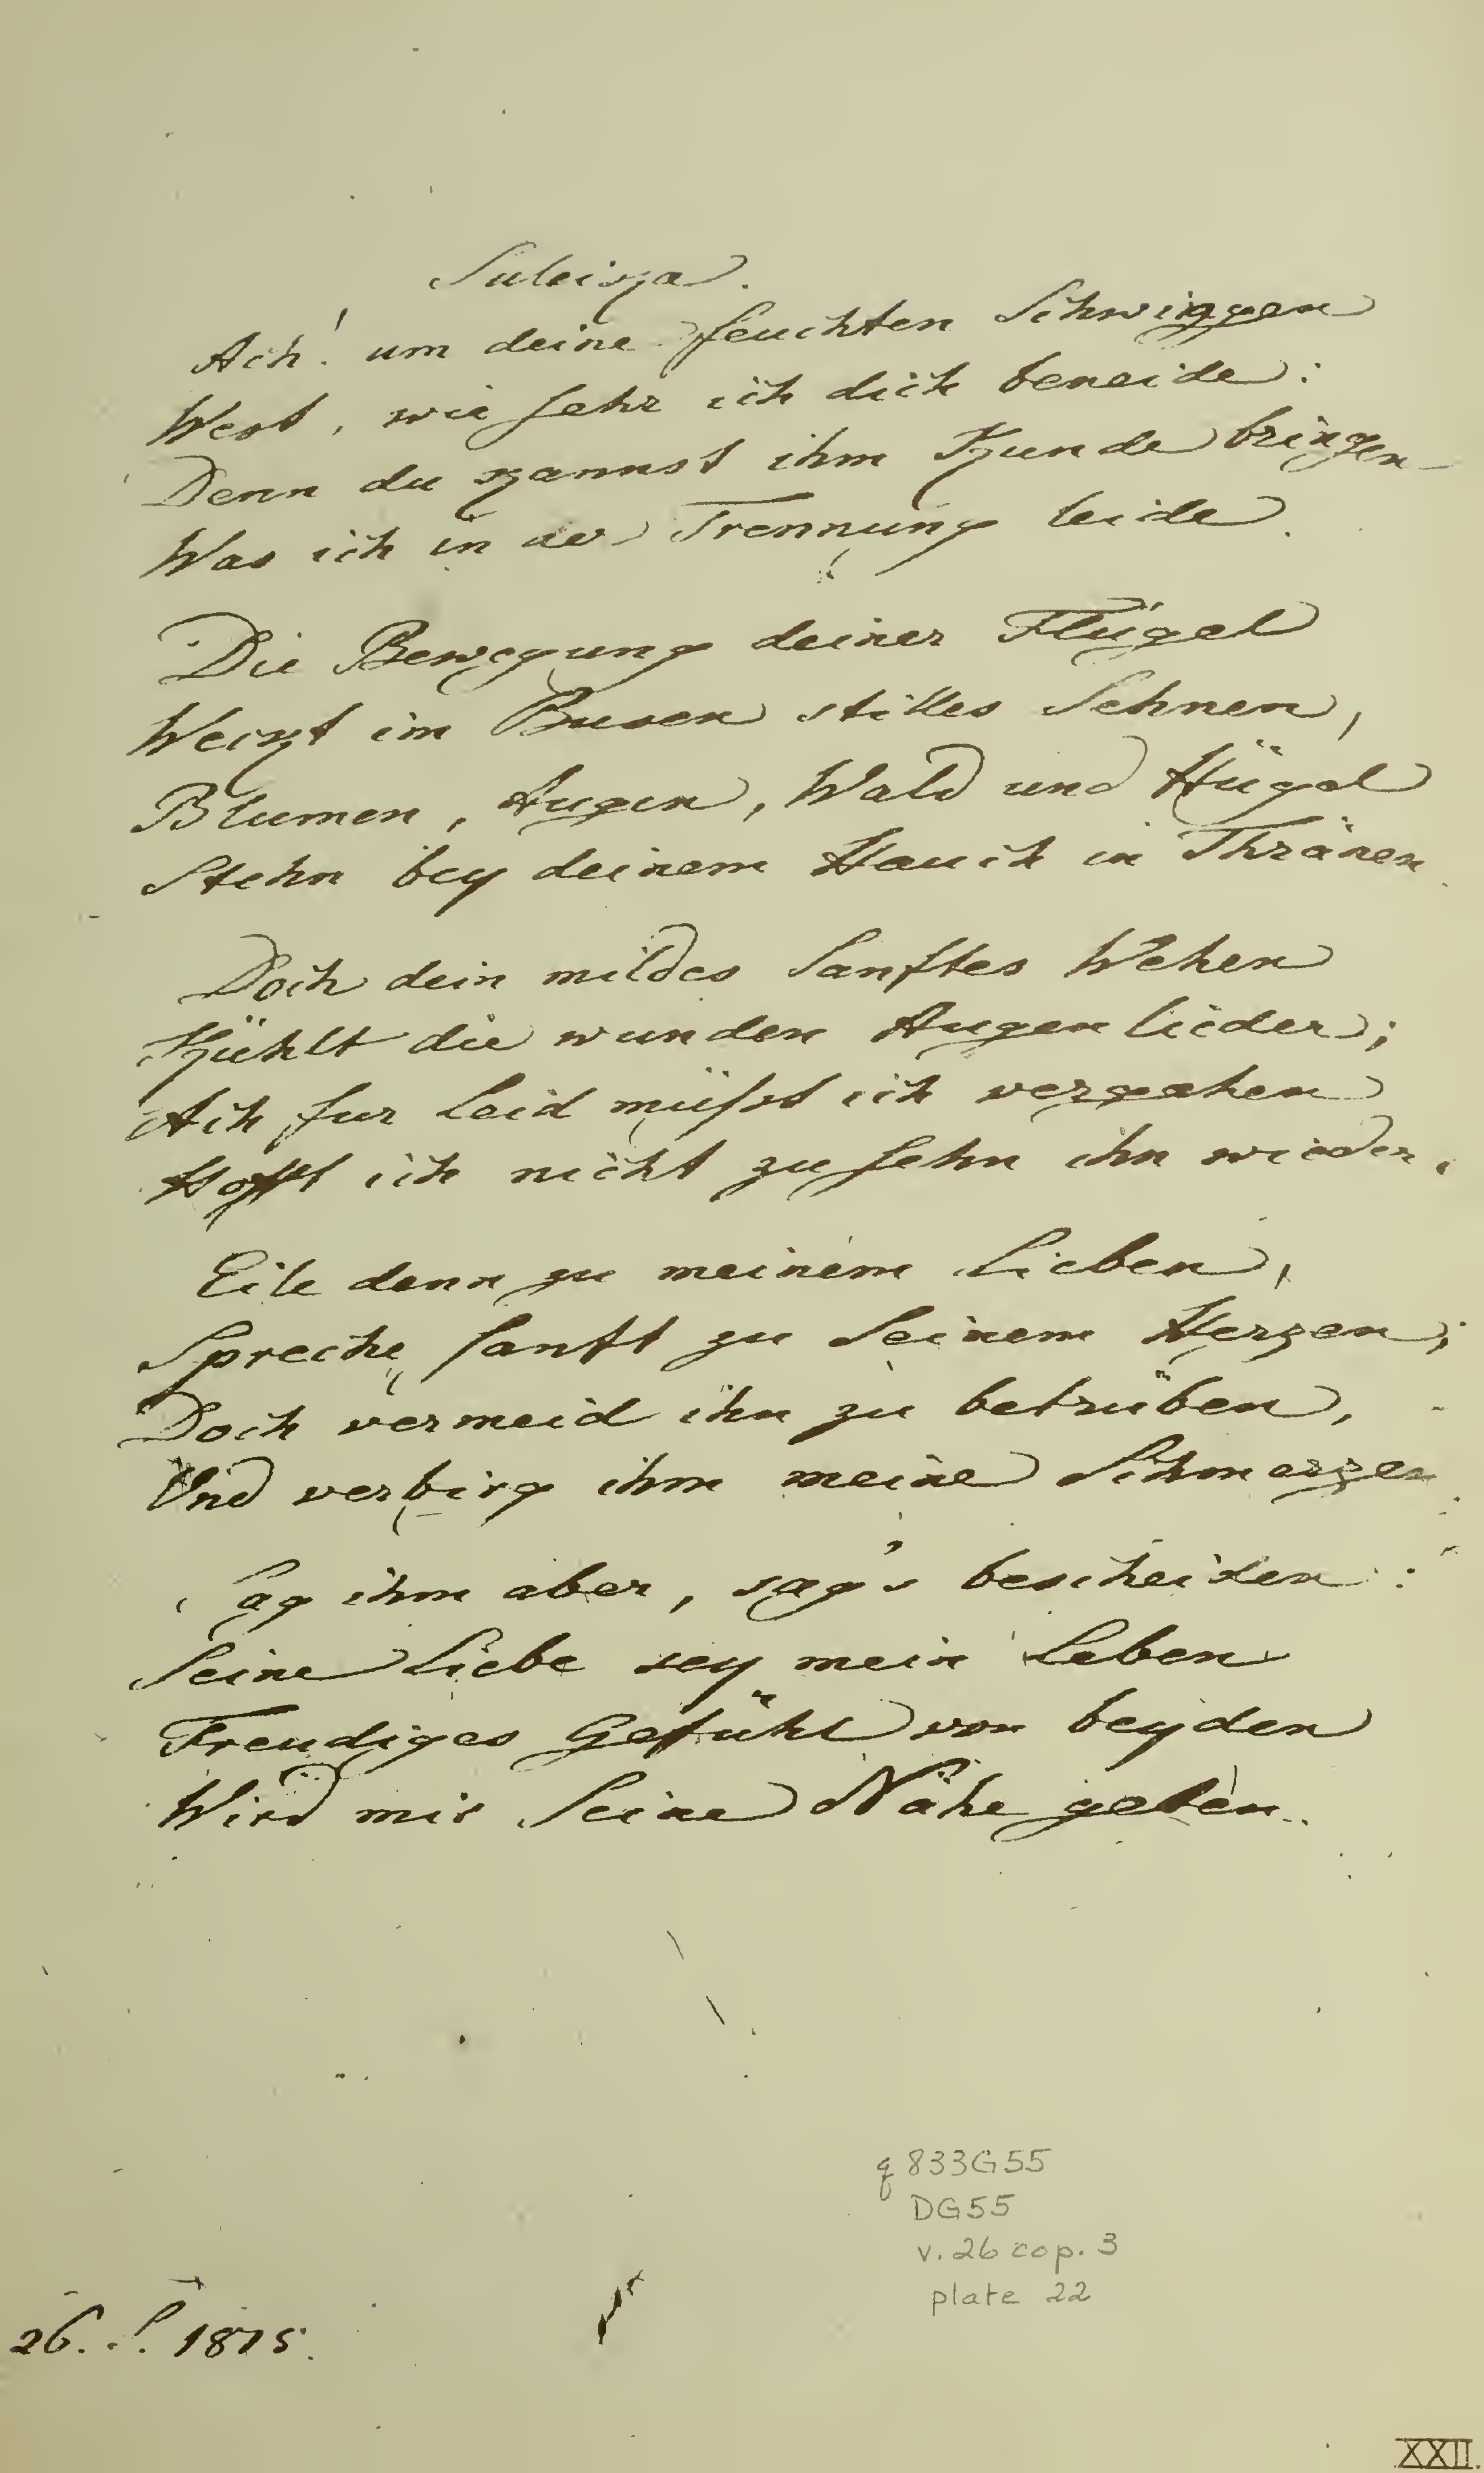 Suleika.
Ach! um deine feuchten Schwingen
West, wie sehr ich dich beneide:
Denn du kannst ihm Kunde bringen
Was ich in der Trennung leide.
Die Bewegung deiner Flügel
Weckt im Busen stilles Sehnen,
Blumen, Augen, Wald und Hügel
Stehn bey deinem Hauch in Thränen.
Doch dein mildes sanftes Wehen
Kühlt die wunden Augenlieder;
Ach fur Leid müßst ich vergehen
Hofft ich nicht zu sehn ihn wieder.
Eile denn zu meinem Lieben,
Spreche sanft zu seinem Herzen;
Doch vermeid ihn zu betrüben,
Und verbirg ihm meine Schmerzen.
Sag ihm aber, sag's bescheiden:
Seine Liebe sey mein Leben
Freudiges Gefühl von beyden
Wird mir seine Nähe geben.
q 833G55
DG55
v. 26 cop. 3
plate 22
26. S. 1815.
XXII.